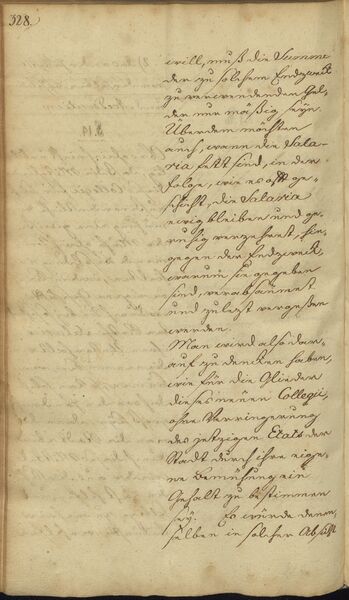 328.
will, muß die Summe
der zu solchem Endzweck
zu verwendenden Gel,
der nur mäßig seyn.
Überdem möchten
auch, wann die Sala-
ria fett sind, in der
Folge, wie es oft ge-
schieht, die Salaria
ewig bleiben und ge-
ruhig verzehret, hin,
gegen der Endzweck,
warum sie gegeben
sind, verabsäumet
und zuletzt vergeßen
werden.
Man wird also dar-
auf zu dencken haben,
wie für die Glieder
dieses neuen Collegii,
ohne Verringerung
des jetzigen Etats der
Stadt durch ihre eige-
ne Bemühung ein
Gehalt zu bestimmen
sey. Es würde denen-
selben in solcher Absicht